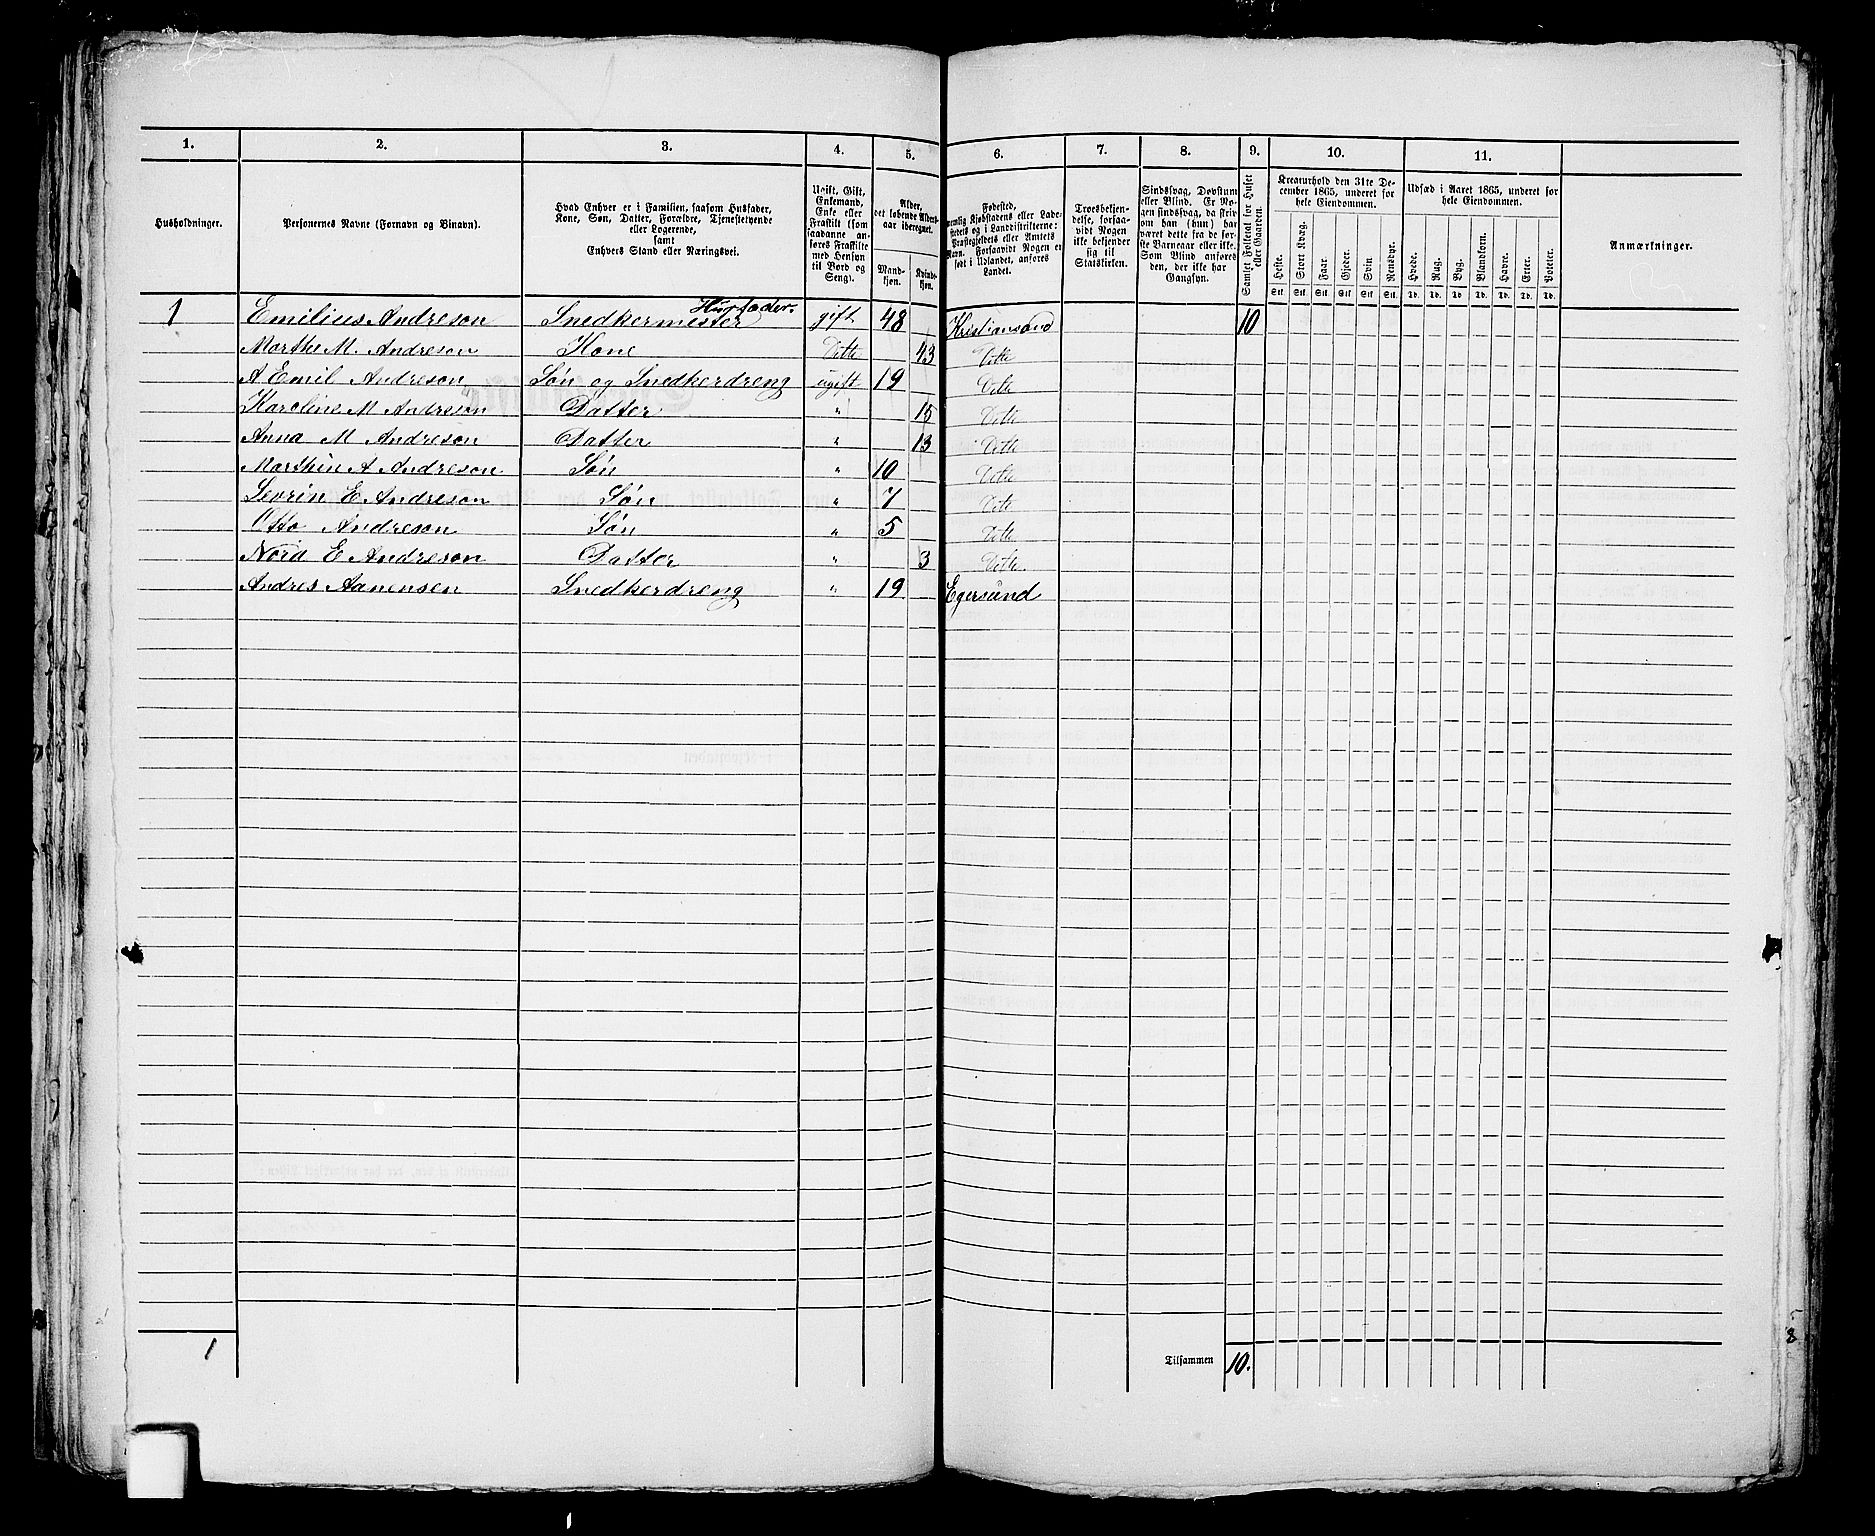 1. 2. 3. 4. 5. 6. 7. 8. 9. 10. 11.
Husholdninger.
Personernes Navne (Fornavn og Binavn).
Hvad Enhver er i Familien, saasom Husfader,
Kone, Søn, Datter, Forældre, Tjenestetyende
eller Logerende,
samt
Enhvers Stand eller Næringsvei.
Ugift, Gift,
Enkemand,
Enke eller
Fraskilt (som
saadanne an-
føres Fraskilte
med Hensyn
til Bord og
Seng).
Alder,
det løbende Alders-
aar iberegnet.
Mand-
kjøn.
Kvind-
kjøn.
Fødested,
nemlig Kjøbstadens eller Lade-
stedets og i Landdistrikterne:
Præstegjeldets eller Amtets
Navn. Forsaavidt Nogen er
født i Udlandet, anføres
Landet.
Troesbekjen-
delse, forsaa-
vidt Nogen
ikke bekjender
sig til
Statskirken.
Sindssvag, Døvstum
eller Blind. Er No-
gen sindssvag, da skriv
om han (hun) har
været dette fra de før-
ste Barneaar eller ikke.
Som Blind anføres
den, der ikke har
Gangsyn.
Samlet Folketal for Huset
eller Gaarden.
Kreaturhold den 31te De-
cember 1865, underet for
hele Eiendommen.
Heste. Stort Kvæg. Faar. Gjeder. Svin. Rensdyr.
Stk. Stk. Stk. Stk. Stk. Stk.
Udsæd i Aaret 1865, underet for
hele Eiendommen.
Hvede. Rug. Byg. Blandkorn. Havre. Erter. Poteter.
Td. Td. Td. Td. Td. Td. Td.
Anmærkninger.
1 Emilius Andreson Snedkermester Husfader. gift 48 Kristiansand 10
Marthe M. Andreson Kone Ditto 43 Ditto
A Emil Andreson Søn og Snedkerdreng ugift 19 Ditto
Karoline M Andreson Datter " 15 Ditto
Anna M Andreson Datter " 13 Ditto
Marthin A Andreson Søn " 10 Ditto
Sevrin E Andreson Søn " 7 Ditto
Otto Andreson Søn " 5 Ditto
Nora E Andreson Datter " 3 Ditto
Andres Aanensen Snedkerdreng " 19 Egersund
1 Tilsammen 10.